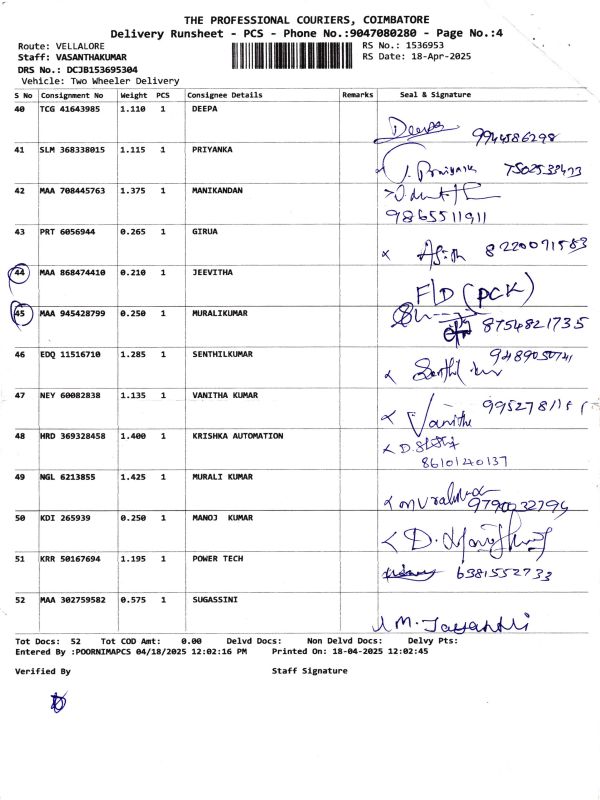 THE PROFESSIONAL COURIERS, COIMBATORE
Delivery Runsheet - PCS - Phone No.:9047080280 - Page No.:4
Route: VELLALORE RS No.: 1536953
Staff: VASANTHAKUMAR RS Date: 18-Apr-2025
DRS No.: DCJB153695304
Vehicle: Two Wheeler Delivery
S No Consignment No Weight PCS Consignee Details Remarks Seal & Signature
40 TCG 41643985 1.110 1 DEEPA
Deepa 9944586298
41 SLM 368338015 1.115 1 PRIYANKA
J. Priyanka
42 MAA 708445763 1.375 1 MANIKANDAN
9865511911
43 PRT 6056944 0.265 1 GIRUA
8220071583
44 MAA 868474410 0.210 1 JEEVITHA
F/D (PCK)
45 MAA 945428799 0.250 1 MURALIKUMAR
8754821735
46 EDQ 11516710 1.285 1 SENTHILKUMAR
9489050741
47 NEY 60082838 1.135 1 VANITHA KUMAR
Vanitha
48 HRD 369328458 1.400 1 KRISHKA AUTOMATION
8610140137
49 NGL 6213855 1.425 1 MURALI KUMAR
9790232794
50 KDI 265939 0.250 1 MANOJ KUMAR
51 KRR 50167694 1.195 1 POWER TECH
6381552733
52 MAA 302759582 0.575 1 SUGASSINI
M. Jayanthi
Tot Docs: 52 Tot COD Amt: 0.00 Delvd Docs: Non Delvd Docs: Delvy Pts:
Entered By :POORNIMAPCS 04/18/2025 12:02:16 PM Printed On: 18-04-2025 12:02:45
Verified By Staff Signature